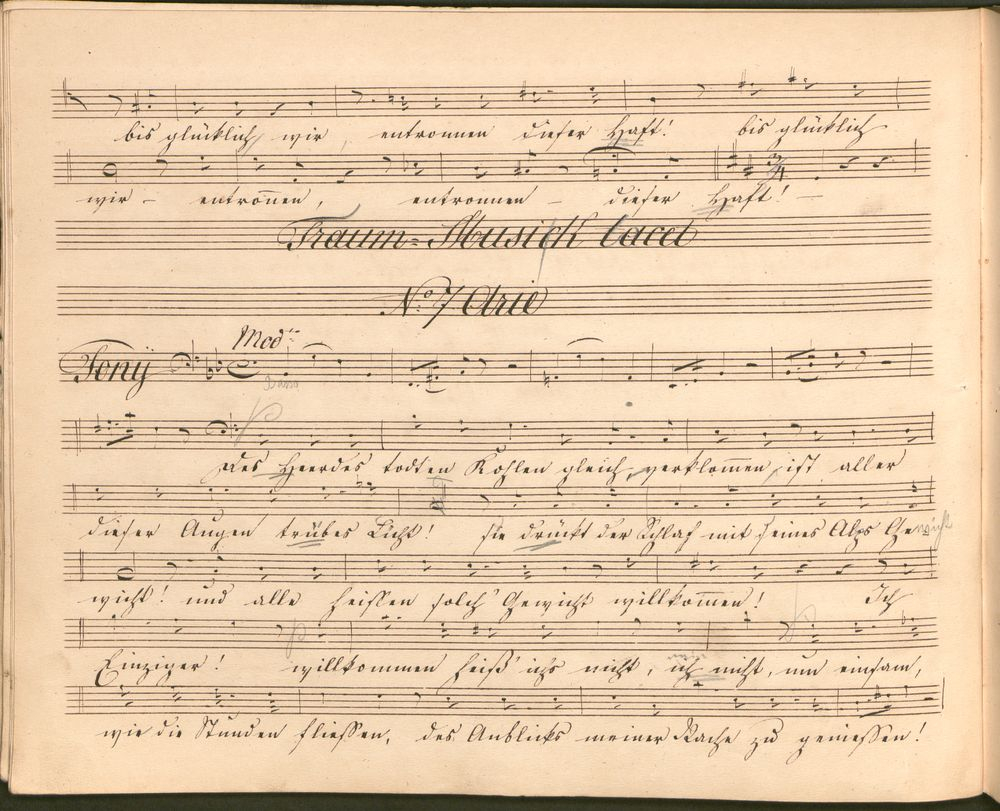 bis glücklich wir entronnen dieser Haft! bis glücklich
wir - entron̅en, entronnen - dieser Haft! -
Traum-Musick tacet
No 7 Arie
Mod
Tonÿ
Basso
Des Heerdes todten Kohlen gleich, verklom̅en ist aller
dieser Augen trübes Licht! sie drückt der Schlaf mit seines Alps Ge wicht
wicht! und alle heissen solch' Gewicht willkom̅en! Ich
Einziger! willkommen heiß' ichs nicht, ich nicht, um einsam,
wie die Stunden fliessen, des Anblicks meiner Rache zu geniessen!